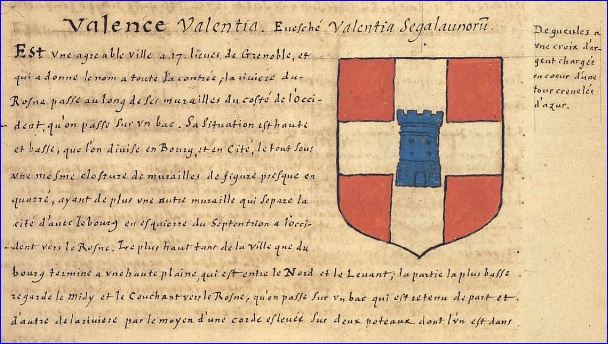 Valence Valentia. Euesché Valentia Segalaunorũ.
Est vne agreable ville a 17. lieues de Grenoble, et
qui a donne le nom a toute la contrée, la riuiere du
Rosne passe au long de ses murailles du costé de l'occi-
dent qu'on passe sur vn bac. Sa situation est haute
et basse, que l'on diuise en Bourg, et en Cité, le tout sous
vne mesme closture de murailles de figure presque en
quarré, ayant de plus vne autre muraille qui separe la
cité d'auec le bourg en esquierre du Septentrion a l'occi-
dent vers le Rosne. Le plus haut tant de la ville que du
bourg termine a vne haute plaine, qui est entre le Nord et le Leuant, la partie la plus basse
regarde le midy et le Couchant vers le Rosne, qu'on passe sur vn bac qui est retenu de part et
d'autre de la riuiere par le moyen d'une corde esleuée sur deux poteaux dont l'vn est dans
De gueulles a
vne croix d'ar-
gent chargée
en coeur d'une
tour crenelée
d'azur.